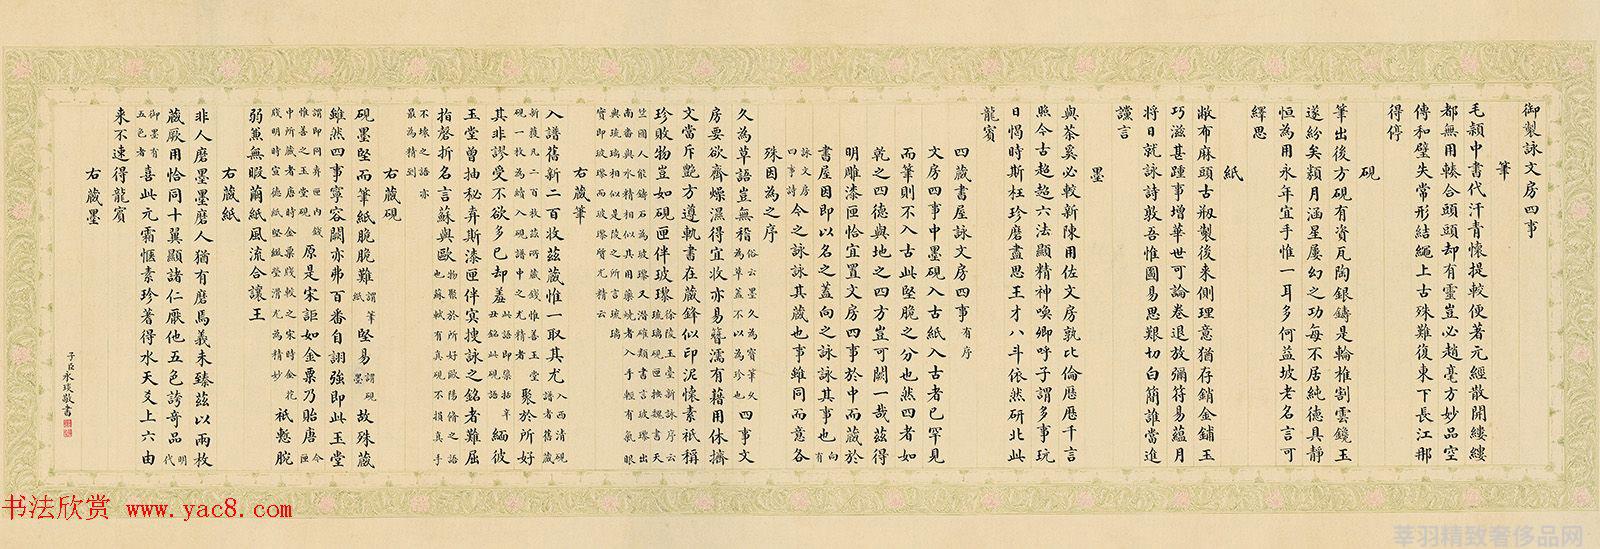 御製詠文房四事
筆
毛穎中書代汗青懷提較便著元經散開縷縷
都無用輳合頭頭却有靈豈必趙毫方妙品空
傳和璧失常形結繩上古殊難復東下長江那
得停
硯
筆出後方硯有資瓦陶銀鑄是輪椎割雲鏡玉
遂紛矣纇月涵星屢幻之功每不居純德具靜
恒為用永年宜手惟一耳多何益坡老名言可
繹思
紙
敝布麻頭古剏製後來側理意猶存銷金鋪玉
巧滋甚踵事增華世可論卷退放彌符易蘊月
將日就詠詩敦吾惟圖易思艱切白簡誰當進
讜言
墨
與茶奚必較新陳用佐文房孰比倫歷歷千言
照今古超超六法顯精神喚卿呼子謂多事玩
日愒時斯枉珍磨盡思王才八斗依然研北此
龍賓
四藏書屋詠文房四事有序
文房四事中墨硯入古紙入古者已罕見
而筆則不入古此堅脆之分也然四者如
乾之四德與地之四方豈可闕一哉茲得
明雕漆匣恰宜置文房四事於中而藏於
書屋因即以名之蓋向之詠詠其事也向有
詠文房四事詩今之詠詠其藏也事雖同而意各
殊因為之序
久為草語豈無稽俗云墨久為寶筆敝久為草蓋不以為珍也四事文
房要欲齊燥濕得宜收亦易簪濡有藉用休擠
文當斥艷方遵軌書在藏鋒似印泥懷素祇稱
珍敗物豈如硯匣伴玻瓈徐陵玉臺新詠序云琉璃硯匣
右藏筆
入譜舊新二百枚茲藏惟一取其尤
聚於所好
其非謬受不欲多已却羞
緬彼
玉堂曾抽秘弆斯漆匣伴寅搜詠之銘者難屈
指磬折名言蘇與歐
不壞之語亦最為精到
右藏硯
硯墨堅而筆紙脆脆難謂筆紙堅易謂硯墨故殊藏
雖然四事寧容闕亦弗百番自詡強即此玉堂
原是宋詎如金粟乃貽唐
祇慙腕
弱兼無暇繭紙風流合讓王
右藏紙
非人磨墨墨磨人猶有磨焉義未臻茲以兩枚
藏厥用恰同十翼顯諸仁厥他五色誇奇品明代
御墨有五色者喜此元霜愜素珍著得水天爻上六由
來不速得龍賓
右藏墨
子臣永琰敬書
书法欣赏 www.yac8.com
莘羽精致奢侈品网